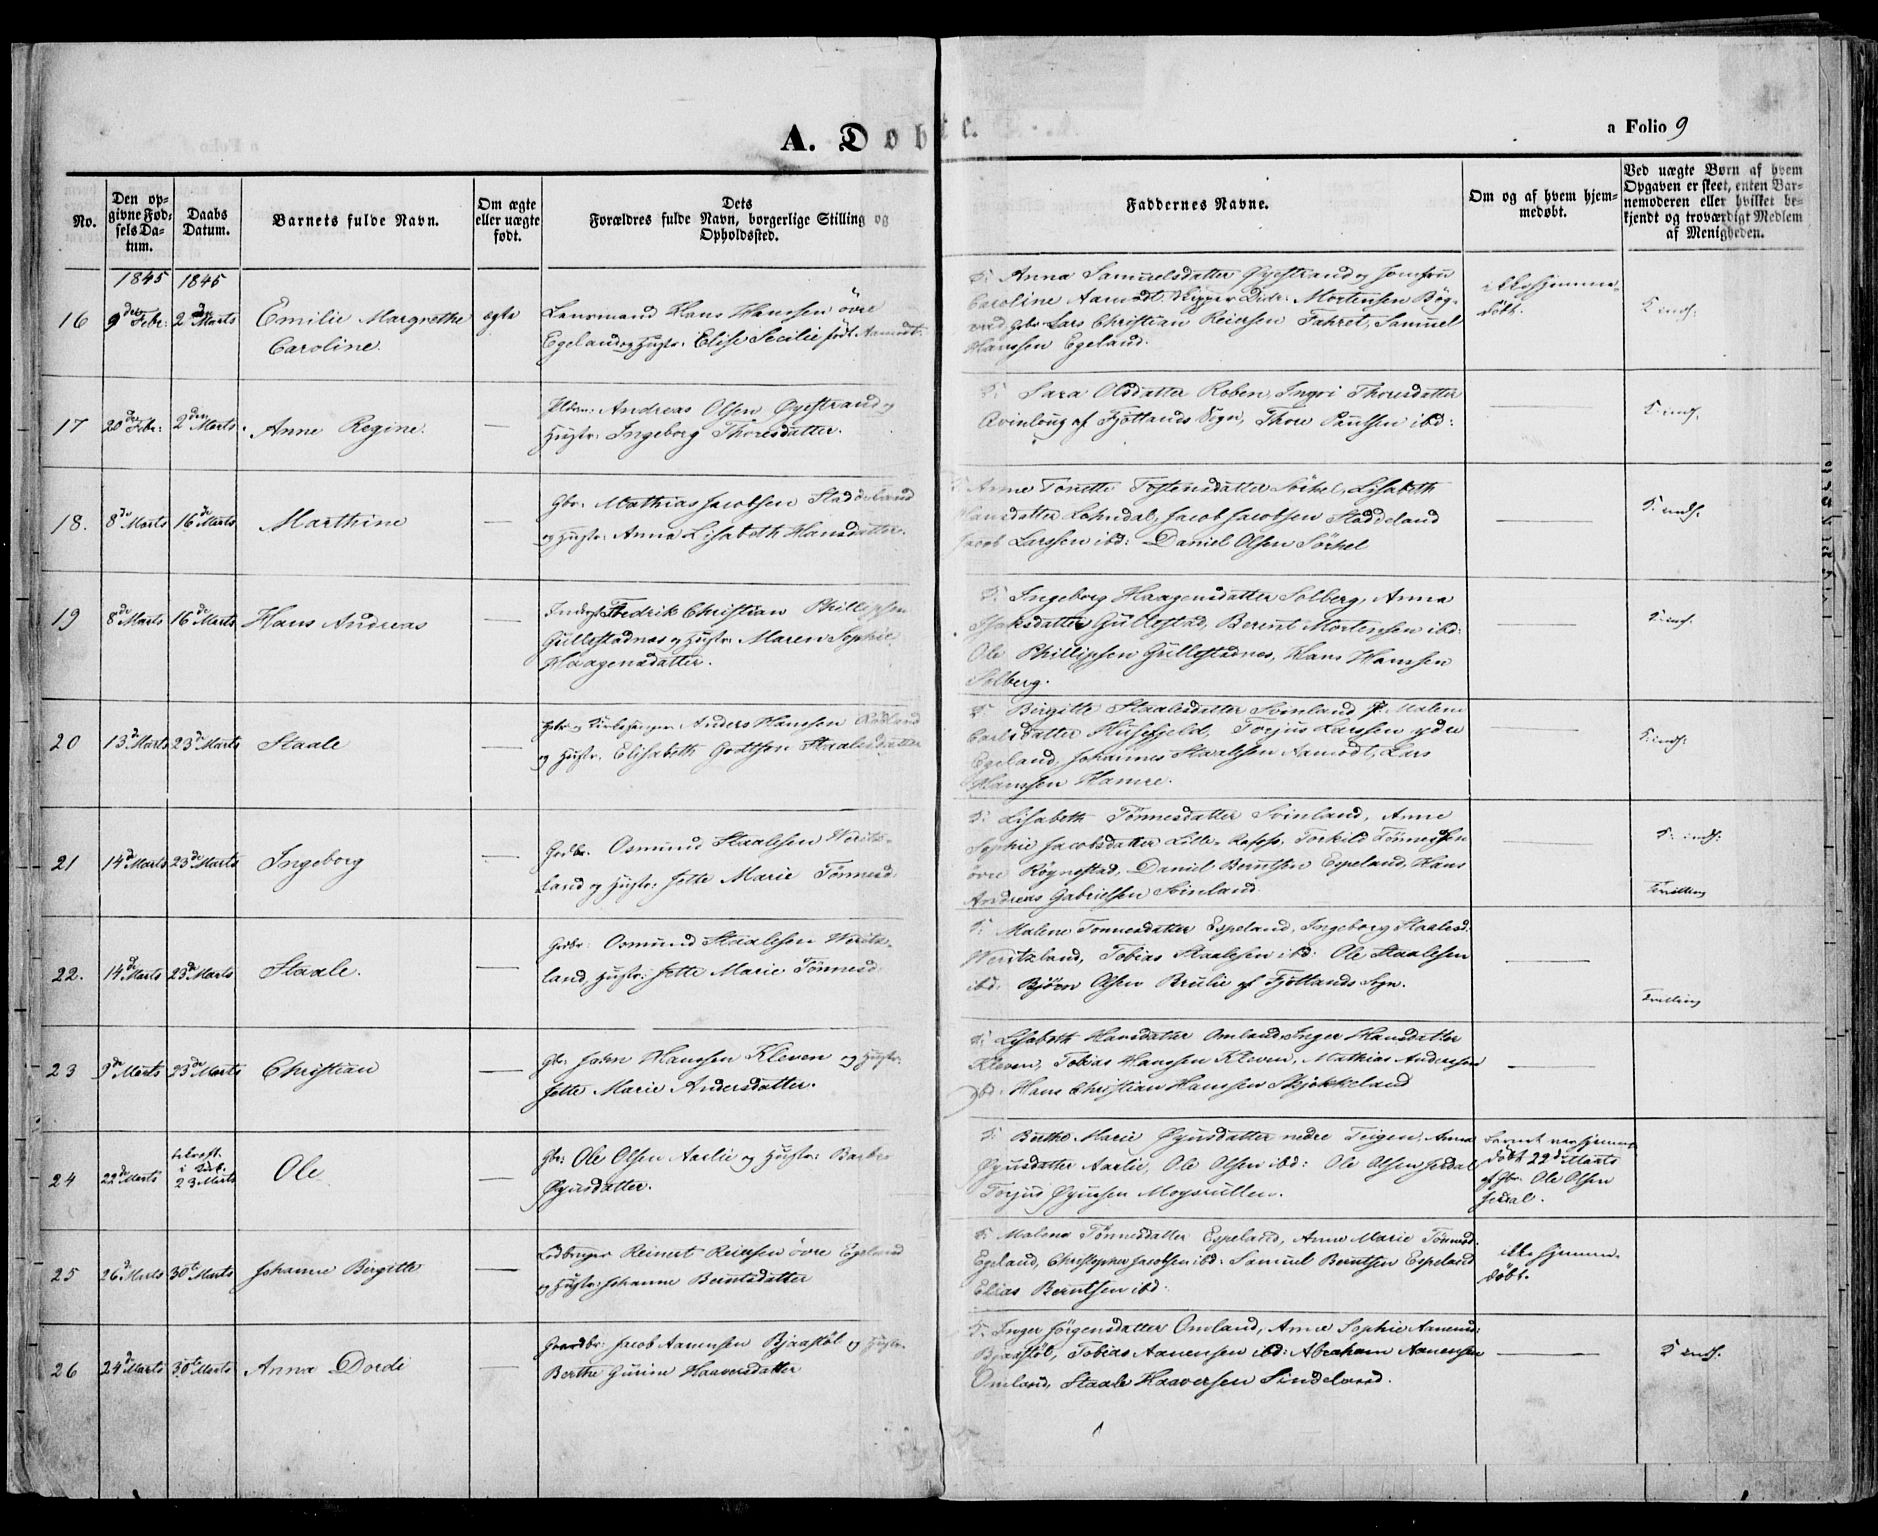 A. Døbte.
a Folio 9
No.
Den op-
givne Fød-
sels Da-
tum.
Daabs
Datum.
Barnets fulde Navn.
Om ægte
eller uægte
født.
Dets
Forældres fulde Navn, borgerlige Stilling og
Opholdssted.
Faddernes Navne.
Om og af hvem hjem-
medøbt.
Ved uægte Børn af hvem
Opgaven er skeet, enten Bar-
nemoderen eller hvilket be-
kjendt og troværdigt Medlem
af Menigheden.
1845 1845
16 9de Febr: 2den Marts Emilie Margrethe
Caroline.
ægte
Lansmand Hans Hanssen övre
Egeland og Hustr: Elise Secilie født Aamodt.
F: Anna Samuelsdatter Øyestrand og Jomfru
Caroline Aamodt, Skipper Didr: Mortensen Bög-
vad, Gbr Lars Christian Reiersen Fahret, Samuel
Hanssen Egeland.
ikke hjemme-
döbt.
17 20de Febr: 2den Marts. Anne Regine.
Andreas Olsen Øyestrand og
Hustr: Ingeborg Thoresdatter.
F: Sara Olsdatter Roben, Ingri Thoresdatter
Qvinlong af Fjotlands Sogn, Thore Paulsen ibd:
18. 8de Marts 16de Marts Marthine
Gbr: Mathias Jacobsen Staddeland
og Hustr: Anna Lisabeth Hansdatter.
Anne Tonette Tostensdatter Sörhel, Lisabeth
Hansdatter Lohndal, Jacob Jacobsen Staddeland
Jacob Larssen ibd: Daniel Olsen Sörhel
19 8de Marts 16de Marts Hans Andreas
Inderst Fredrik Christian Phillipsen
Gullestadnæs og Hustr: Maren Sophie
Haagensdatter.
F: Ingeborg Haagensdatter Solberg, Anna
Isaksdatter Gullestad, Berent Mortensen ibd:
Ole Phillipsen Gullestadnes, Hans Hanssen
Solberg.
20 13de Marts 23de Marts Staale
Gbr og Kirkesanger Anders Hanssen Rödland
og Hustr. Elisabeth Godtfon Staalesdatter
F: Birgitte Staalesdatter Svinland, Malene
Carlsdatter Husefjeld, Torjus Larssen ydre
Egeland, Johannes Staalesen Aamodt, Lars
Hanssen Hamre.
21 14de Marts 23de Marts Ingeborg
Grdbr. Osmund Staalesen Werits-
land og Hustr: Jette Marie Tönnesd.
F: Lisabeth Tönnesdatter Svinland, Anne
Sophie Jacobsdatter Lille Refses, Torkild Tönnessen
övre Rögnestad, Daniel Berntsen Espeland, Hans
Andreas Gabrielsen Svinland.
Tvilling
22. 14de Marts 23de Marts Staale.
Grdbr: Osmund Staalesen Werits-
land, Hustr: Jette Marie Tönnesd.
F: Malene Tonnesdatter Espeland, Ingeborg Staalesd.
Weritzland, Tobias Staalesen ibd: Ole Staalesen
ibd: Bjöen Olsen Brulie af Fjotlands Sogn.
Tvilling
23 9de Marts 23de Marts Christian
Gbr: John Hanssen Kleven og Hustr:
Jette Marie Andersdatter.
F: Lisabeth Hansdatter Omland, Inger Hansdatter
Kleven, Tobias Hanssen Kleven, Mathias Anderssen
ibd: Hans Christian Hanssen Skjekkeland
24 22de Marts
23 Marts
Ole
Gbr: Ole Olsen Aarlie og Hustr: Barbro
Øyusdatter.
F: Berthe Marie Øyusdatter nedre Teigen, Anna
Øyusdatter Aarlie, Ole Olsen ibd: Ole Olsen Jerdal
Torjus Øyusen Moysrullen.
Barnet var hjemme
döbt 22de Marts
af Gbr: Ole Olsen
Jerdal.
25 26de Marts 30te Marts Johanne Birgitte
Reinert Reiersen övre Egeland
og Hustr: Johanne Berntsdatter
F: Malene Tønnesdatter Espeland, Anne Marie Tönnesd.
Egeland, Christopher Jacobsen ibd: Samuel Berntsen Espeland
Elias Berntsen ibd:
ikke hjemme-
döbt.
26 24de Marts 30te Marts Anna Dordi
Gaardbr: Jacob Aanensen Bjaastöl og Hustr.
Berthe Gurine Haaversdatter
F: Inger Jörgensdatter Omland, Anne Sophie Aanensd:
Bjaastöl, Tobias Aanensen ibd: Abraham Aanensen
Omland, Staale Haaversen Sindeland.